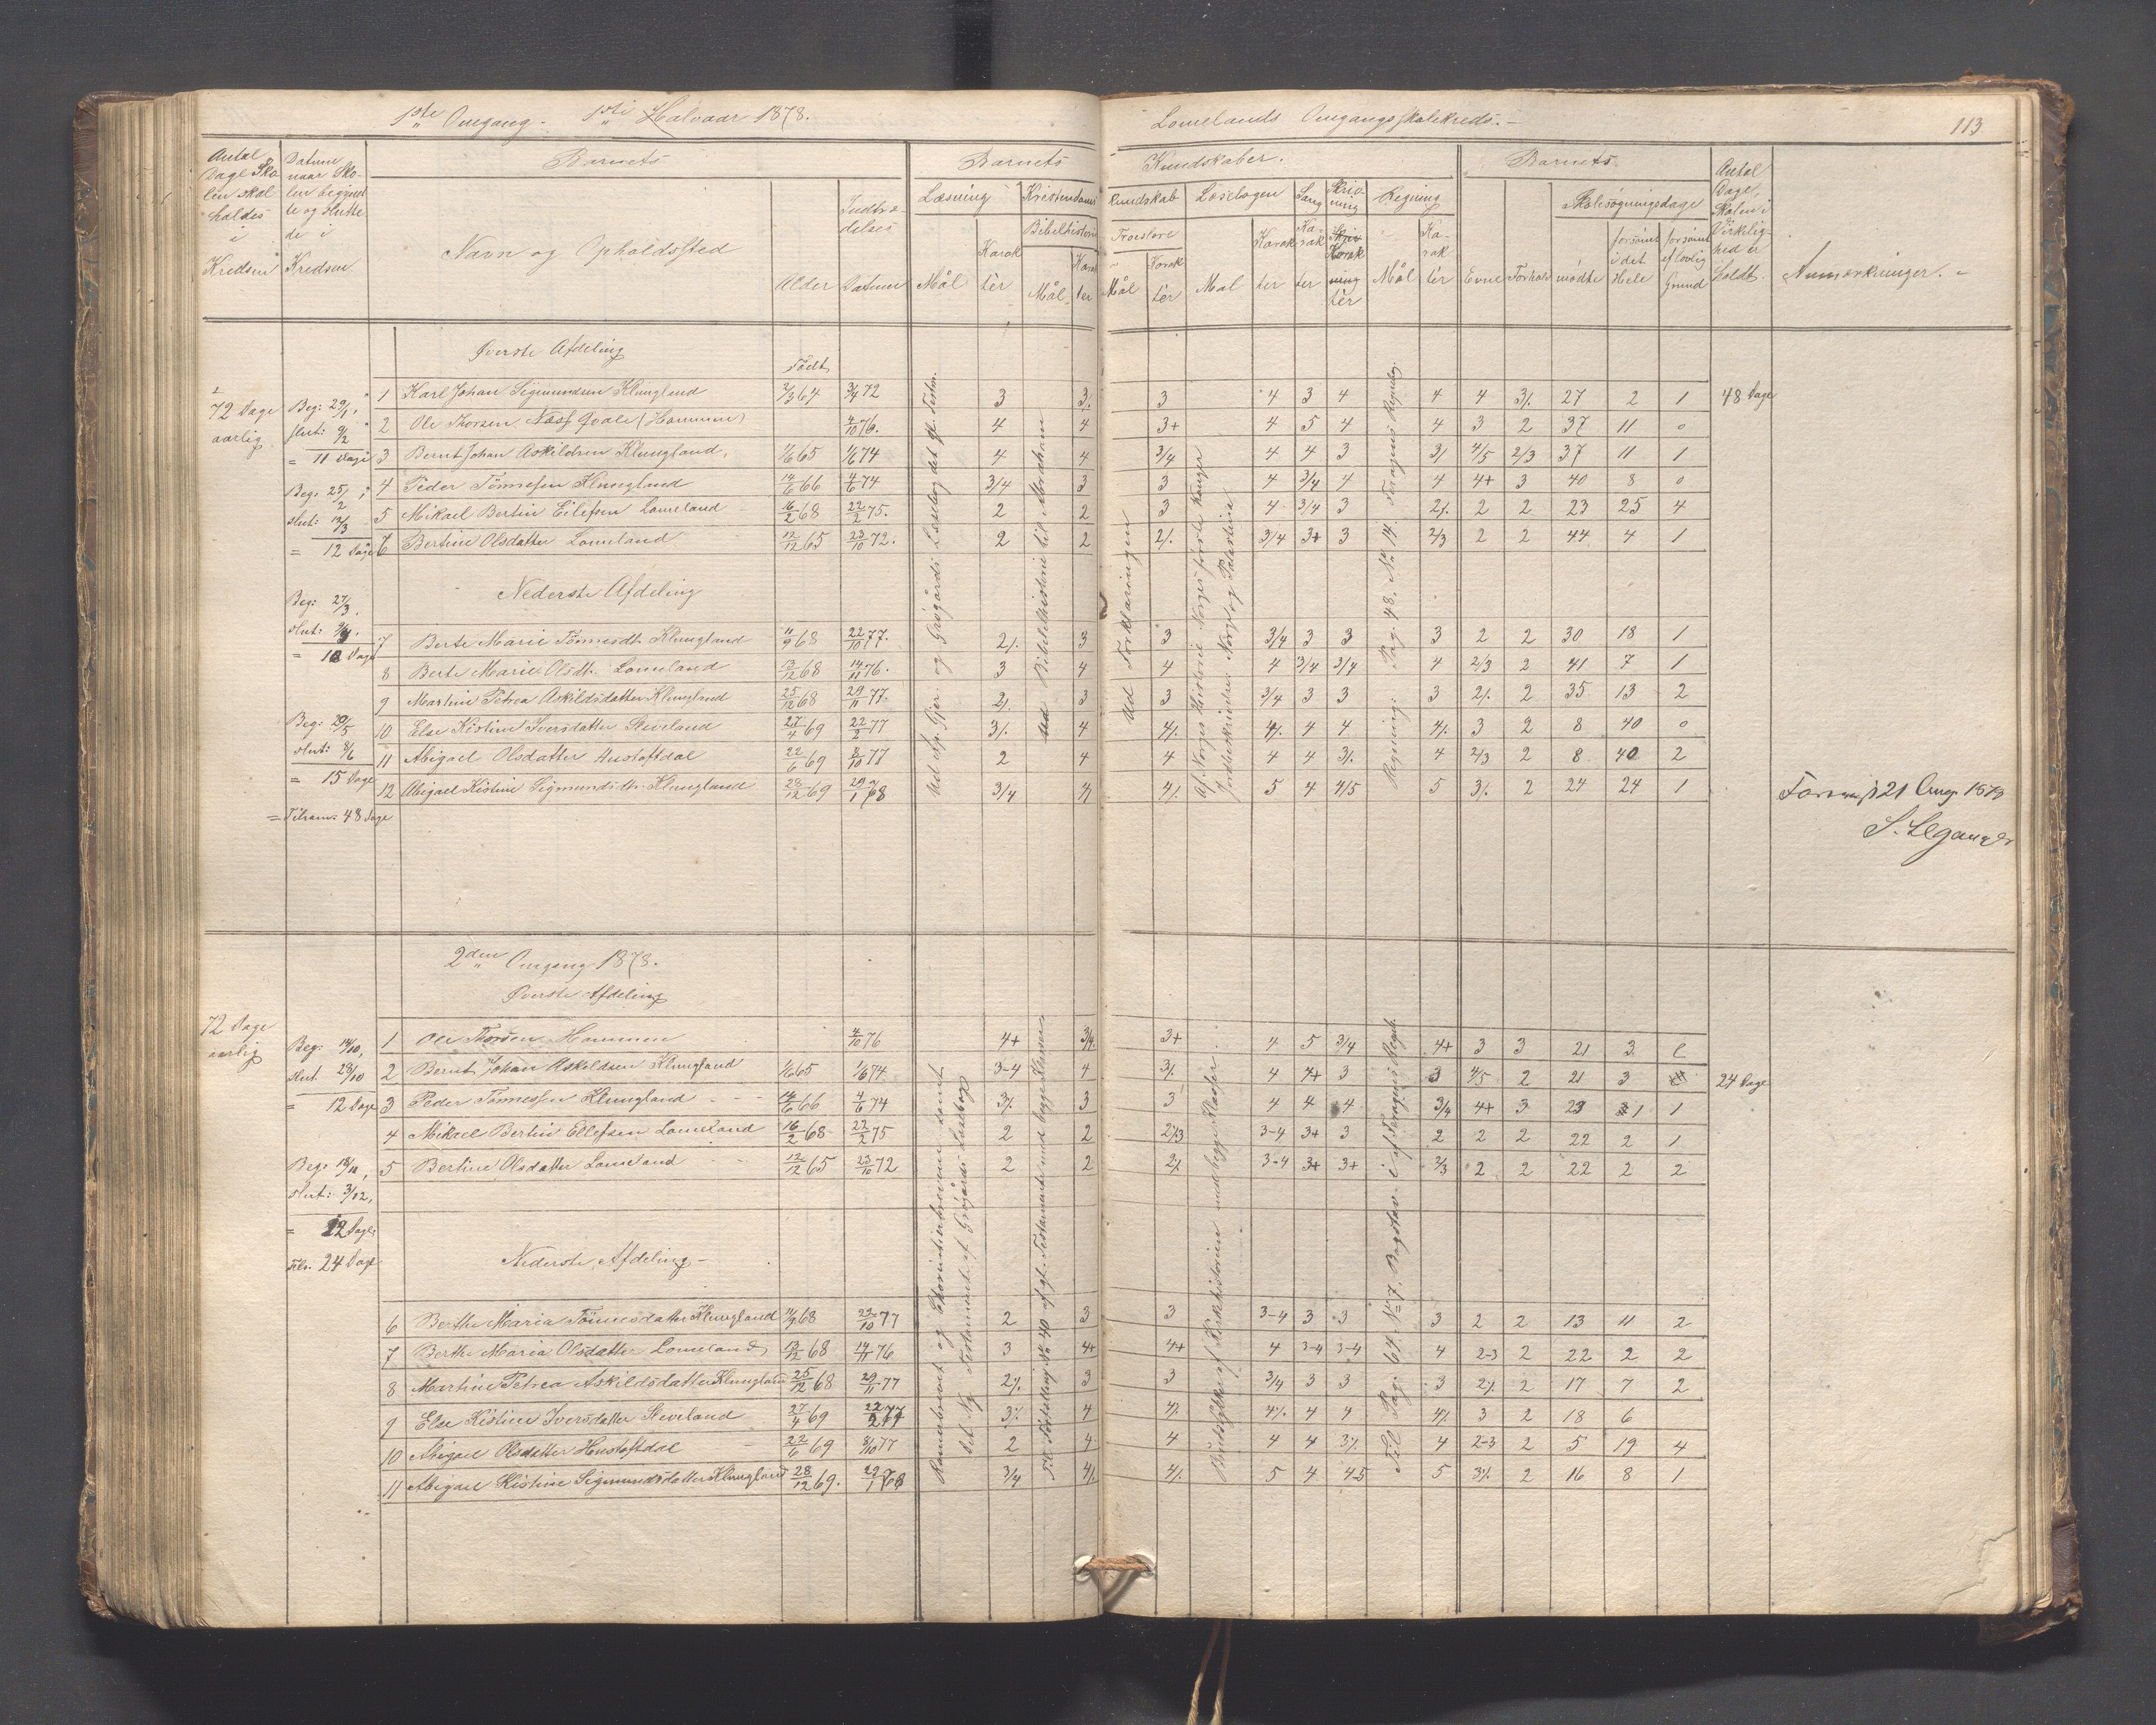 1ste Omgang - 1ste Halvaar 1878.
Lomelands Omgangsskolekreds. -
113
Antal Dage Skolen skal holdes i Kredsen
Datum naar Skolen begyndte og sluttede i Kredsen
Barnets
Navn og Opholdssted
Alder
Indtrædelses Datum
Barnets Kundskaber.
Læsning
Mål
Karakter
Kristendomskundskab
Bibelhistorie
Mål
Karakter
Troeslære
Mål
Karakter
Læsebogen
Mål
Karakter
Sang
Karakter
Skrivning
Karakter
Regning
Mål
Karakter
Barnets
Evne
Forhold
Skolesøgningsdage
mødte
forsømt i det Hele
forsømt af lovlig Grund
Antal Dage, Skolen i Virkelighed er holdt.
Anmærkninger. -
Øverste Afdeling
Født
72 Dage aarlig
Beg: 29/1,
slut: 9/2
= 11 Dage
Beg: 25/2
slut: 13/3
= 12 Dage
Beg: 27/3.
slut: 9/4.
= 10 Dage
Beg: 20/5
slut: 8/6
= 15 Dage
= Tilsam: 48 Dage
1 Karl Johan Sigmundsen Klungland 2/3 64 3/4 72 3 3/. 3 4 3 4 4 4 3/. 27 2 1 48 Dage
2 Ole Thorsen Næss Qvale (Hammen) 4/10 76. 4 4 3+ 4 5 4 4 3 2 37 11 0
3 Bernt Johan Askildsen Klungland, 1/6 65 1/6 74 4 4 3/4 4 4 3 3/ 4/5 2/3 37 11 1
4 Peder Tønnesen Klungland 14/6 66 4/6 74 3/4 3 3 4 3/4 4 4 4+ 3 40 8 0
5 Mikael Bertin Eilefsen Lomeland 16/2 68 22/2 75. 2 2 3 4 3/4 3 2/. 2 2 23 25 4
6 Bertine Olsdatter Lomeland 12/12 65 23/10 72. 2 2 2/. 3/4 3+ 3 2/3 2 2 44 4 1
Nederste Afdeling
7 Berte Marie Tønnesdt. Klungland 11/9 68 22/10 77. 2/. 3 3 3/4 3 3 3 2 2 30 18 1
8 Berte Marie Olsdt. Lomeland 13/12 68 14/11 76. 3 4 4 4 3/4 3/4 4 2/3 2 41 7 1
9 Martine Petrea Askildsdatter Klungland 25/12 68 29/11 77. 2/. 3 3 3/4 3 3 3 2/. 2 35 13 2
10 Else Kistine Iversdatter Steveland 27/4 69 22/2 77 3/. 4 4/. 4/. 4 4 4/. 3 2 8 40 0
11 Abigael Olsdatter Hustoftdal 22/6 69 8/10 77 2 4 4 4 4 3/. 4 2/3 2 8 40 2
12 Abigael Kistine Sigmundsdtr. Klungland 28/12 69 29/1 78 3/4 4/ 4/. 5 4 4/5 5 3/. 2 24 24 1
Bibelhistorie til Abraham
Ud Forklaringen
Af Norges Historie Norges første Konger
Jordbeskrivelse: Norge og Palæstina
Regning: Pag. 48, No 14.
21 Aug 1878
2den Omgang 1878.
Øverste Afdeling
72 Dage aarlig
Beg: 14/10,
slut. 28/10
= 12 Dage
Beg: 18/11,
slut: 3/12,
= 12 Dage
Tils. 24 Dage
1 Ole Thorsen Hammen 4/10 76 4+ 3/4. 3+ 4 5 3/4 4+ 3 3 21 3
2 Bernt Johan Askildsen Klungland 1/6 65 1/6 74 3-4 4 3/. 4 4+ 3 3 4/5 2 21 3 24 Dage
3 Peder Tønnessen Klungland 14/6 66 4/6 74 3/. 3 3 4 4 4 3/4 4+ 3 23 1 1
4 Mikael Bertin Ellefsen Lomeland 16/2 68 22/2 75 2 2 2/3 3-4 3+ 3 2 2 2 22 2 1
5 Bertine Olsdatter Lomeland 12/12 65 23/10 72 2 2 2/. 3-4 3+ 3+ 2/3 2 2 22 2 2
Nederste Afdeling -
6 Berthe Maria Tønnesdatter Klungland 11/9 68 22/10 77 2 3 3 3-4 3 3 3 2 2 13 11 2
7 Berthe Maria Olsdatter Lomeland 13/12 68 14/11 76 3 4+ 4+ 4 3-4 3-4 4 2-3 2 22 2 2
8 Martine Petrea Askildsdatter Klungland 25/12 68 29/11 77 2/. 3 3 3/4 3 3 3 2/. 2 17 7 2
9 Else Kistine Iversdatter Steveland 27/4 69 22/2 77 3/. 4 4/. 4/. 4 4 4/. 3 2 18 6
10 Abigael Olsdatter Hustoftdal 22/6 69 8/10 77 2 4 4 4 4 3/. 4 2-3 2 5 19 4
11 Abigael Kistine Sigmundsdatter Klungland 28/12 69. 29/1 78 3/4 4/. 4/. 5 4 4 5 5 3/. 2 16 8 1
Romerbrevet og Ekorintierbrevene samt
det Ny Testamente af Grøgårds Læsebog
Til Fortælling No 40 af gl. Testamente med begge Klasser
Brudstykke af Kirkehistorien med begge Klasser.
Til Pag. 64. No 7, Bogstav i af